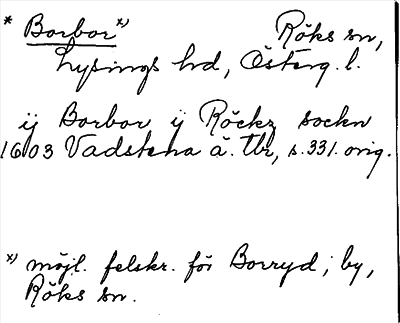 * Borbor *) Röks sn,
Lysings hd, Österg. l.
ij Borbor ij Röckz sockn
1603 Vadstena ä. Tbr, s. 331. orig.
*) möjl. felskr. för Borryd, by,
Röks sn.